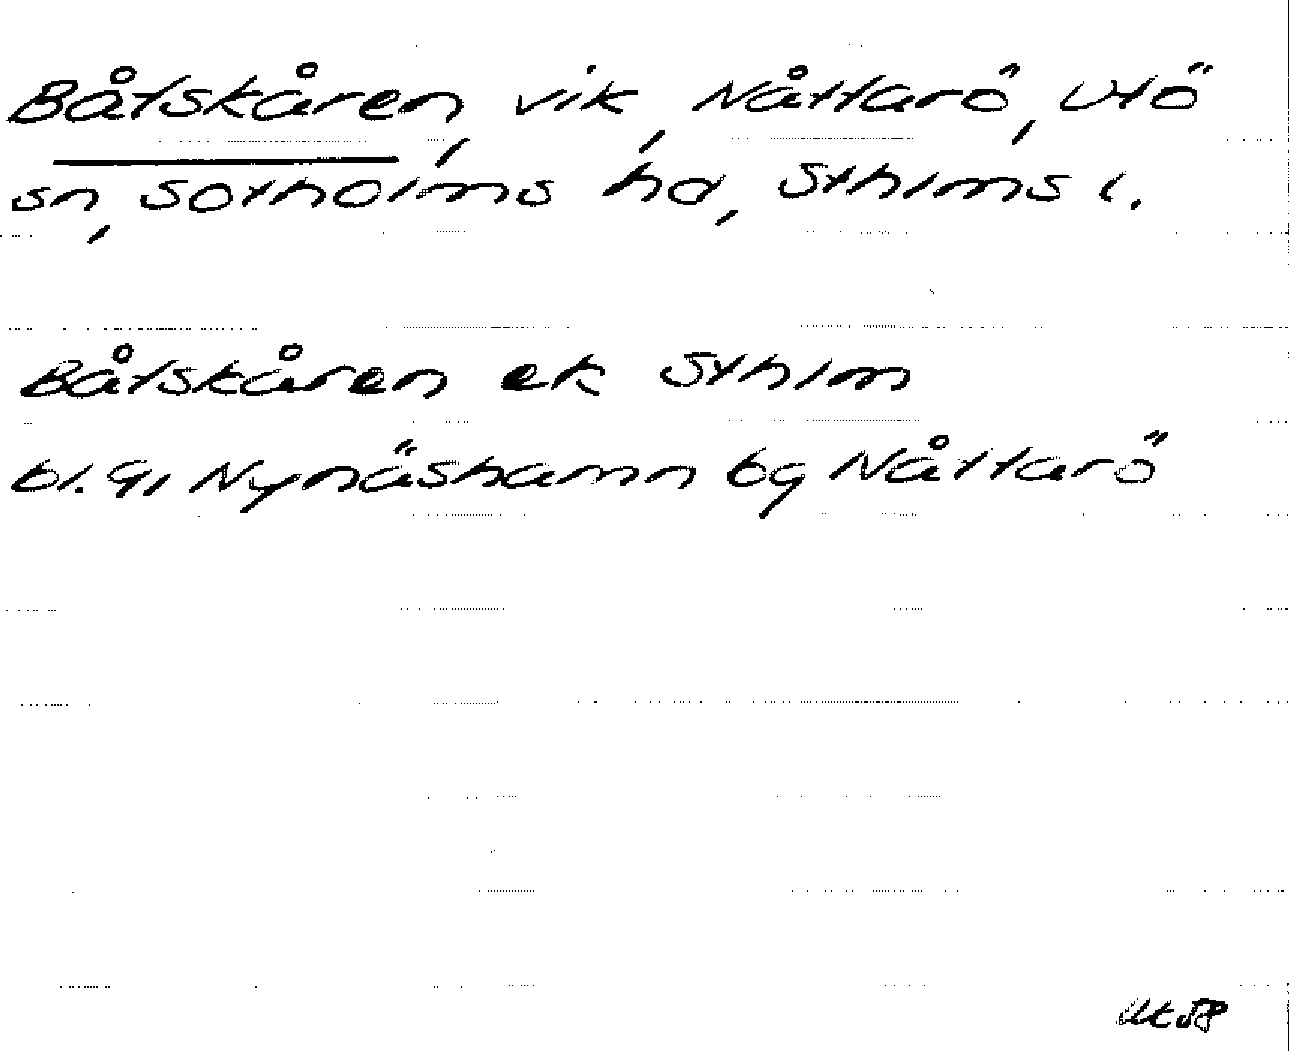 Båtskåren, vik, Nåttarö, Utö
sn, Sotholms hd, Sthlms l.
Båtskåren ek Sthlm
bl. 91 Nynäshamn bg Nåttarö